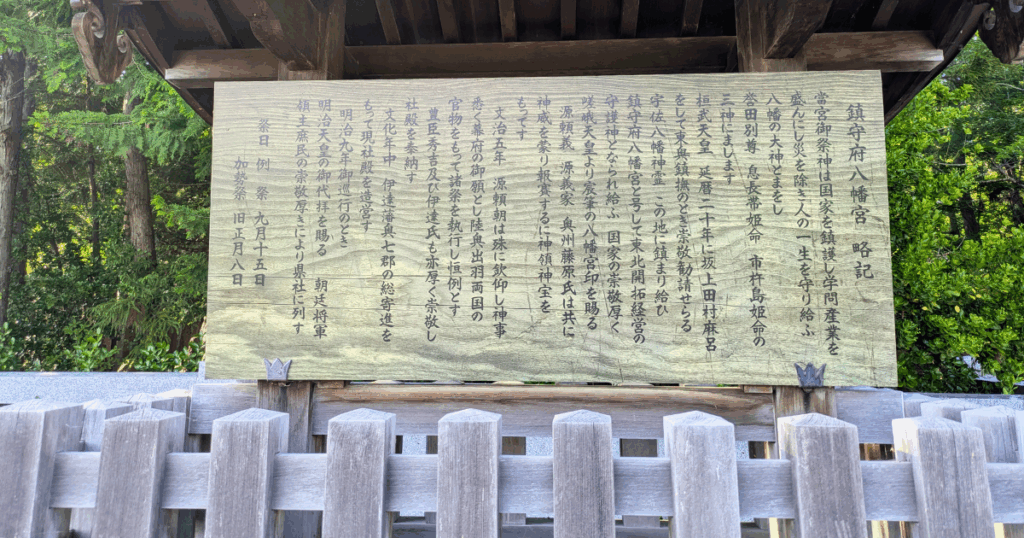 鎮守府八幡宮 略記
当宮御祭神は国家を鎮護し学問産業を
盛んにし災を除き人の一生を守り給ふ
八幡の大神とまをし
誉田別尊 息長帯姫命 市杵島姫命の
三神にまします
桓武天皇 延暦二十年に坂上田村麻呂
をして東奥鎮撫のとき崇敬勧請せらる
宇佐八幡神霊 この地に鎮まり給ひ
鎮守府八幡宮と号して東北開拓経営の
守護神となられ給ふ 国家の崇敬厚く
嵯峨天皇より宸筆の八幡宮印を賜る
源頼義 源義家 奥州藤原氏は共に
神威を蒙り報賽するに神領神宝を
もってす
文治五年 源頼朝は殊に欽仰し神事
悉く幕府の御願とし陸奥出羽両国の
官物をもって諸祭を執行し恒例とす
豊臣秀吉及び伊達氏も亦厚く崇敬し
社殿を奉納す
文化年中 伊達藩奥七郡の総寄進を
もって現社殿を造営す
明治九年御巡行のとき
明治天皇の御代拝を賜る 朝廷将軍
領主庶民の崇敬厚きにより県社に列す
祭日 例祭 九月十五日
加勢祭 旧正月八日